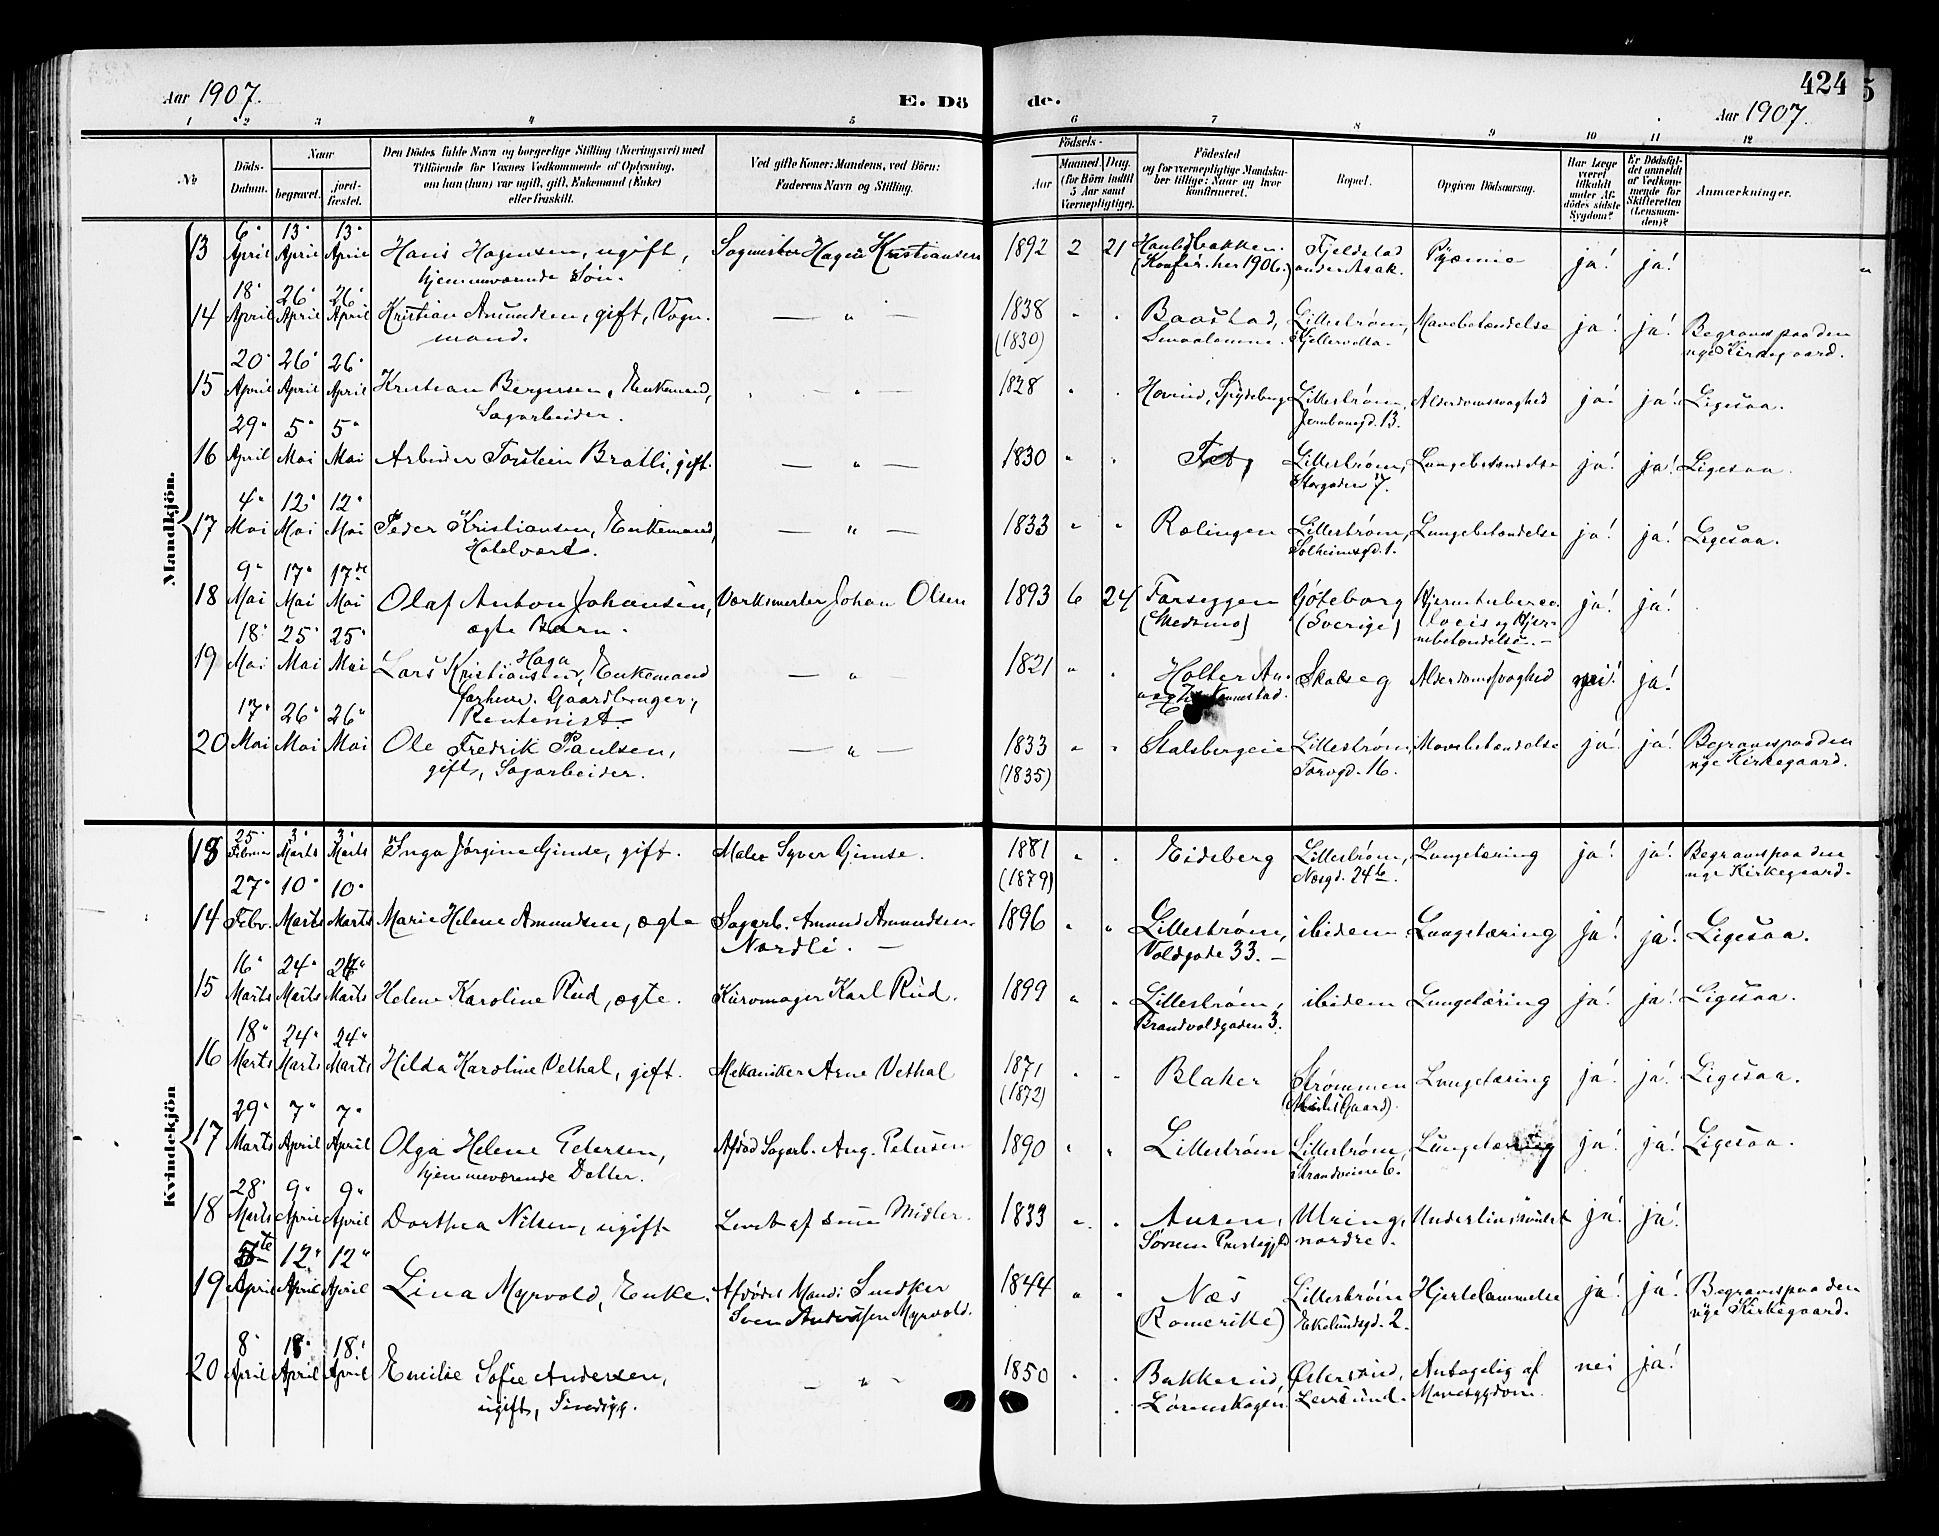 Aar 1907.
E. Dö
de.
424
5
Aar 1907.
1 2 3 4 5
6 7 8 9 10 11 12
No
Döds-
Datum.
Naar
begravet.
jord-
fæstet.
Den Dödes fulde Navn og borgerlige Stilling (Næringsvei) med
Tilföiende for Voxnes Vedkommende af Oplysning,
om han (hun) var ugift, gift, Enkemand (Enke)
eller fraskilt.
Ved gifte Koner: Mandens, ved Börn:
Faderens Navn og Stilling.
Födsels-
Aar
Maaned.
Dag.
(for Börn indtil
5 Aar samt
Værnepligtige).
Födested
og for værnepligtige Mandska-
ber tillige: Naar og hvor
konfirmeret.
Bopæl.
Opgiven Dödsaarsag.
Har Læge
været
tilkaldt
under Af-
dödes sidste
Sygdom?
Er Dödsfal-
det anmeldt
af Vedkom-
mende for
Skifteretten
(Lensman-
den)?
Anmærkninger.
Mandkjön.
13 6' April 13' April 13' April Hans Hagensen, ugift, Sagmester Hagen Kristiansen 1892 2 21 Fjeldstad Pyæmie ja! ja!
hjemmeværende Søn. (Konfir. her 1906.) under Asak.
14 18' April 26' April 26' April Kristian Amundsen, gift, Vogn- — " — 1838 " " Baastad, Lillestrøm, Mavebetændelse ja! ja! Begravet paa den
mand. (1830) Smaalenene. Kjellervolla. nye Kirkegaard.
15 20' April 26' April 26' April Kristian Bergersen, Enkemand, — " — 1828 " " Hovind, Spydeberg Lillestrøm, Alderdomssvaghed ja! ja! Ligesaa.
Sagarbeider. Jernbanegd. 13.
16 29' April 5' Mai 5' Mai Arbeider Torstein Bratli, gift. — " — 1830 " " Fet, Lillestrøm, Lungebetændelse ja! ja! Ligesaa.
Storgaden 7.
17 4' Mai 12' Mai 12' Mai Peder Kristiansen, Enkemand, — " — 1833 " " Rælingen Lillestrøm, Lungebetændelse ja! ja! Ligesaa.
Hotelvært. Solheimsgd. 1.
18 9' Mai 17' Mai 17de Mai Olaf Anton Johansen, Værksmester Johan Olsen 1893 6 24 Farseggen Göteborg Hjernetuberco- ja! ja!
ægte Barn. (Skedsmo) (Sverige) losis og Hjer-
nebetændelse. —
19 18' Mai 25' Mai 25' Mai Lars Kristiansen Haga, Enkemand — " — 1821 " " Holter Skatseg Alderdomssvaghed nei! ja!
forhenv. Gaardbruger,
Rentenist.
20 17' Mai 26' Mai 26' Mai Ole Fredrik Paulsen, — " — 1833 " " Stalsbergeie Lillestrøm, Mavebetændelse ja! ja! Begravet paa den
gift, Sagarbeider. (1835) Torvgd. 16. nye Kirkegaard.
Kvindekjön
13 25' Februar 3' Marts 3' Marts Inga Jørgine Gimse, gift. Maler Syver Gimse. 1881 " " Eidsberg Lillestrøm, Lungetæring ja! ja! Begravet paa den
(1879) Næsgd. 24b. nye Kirkegaard.
14 27' Febr. 10' Marts 10' Marts Marie Helene Amundsen, ægte Sagarb. Amund Amundsen 1896 " " Lillestrøm, ibidem Lungetæring ja! ja! Ligesaa.
Nordli. — Voldgade 33. —
15 16' Marts 24' Marts 24' Marts Helene Karoline Rud, ægte. Kurvmager Karl Rud. 1899 " " Lillestrøm, ibidem Lungetæring ja! ja! Ligesaa.
Brandvoldgaden 3.
16 18' Marts 24' Marts 24' Marts Hilda Karoline Vethal, gift. Mekaniker Arne Vethal 1871 " " Blaker Strømmen Lungetæring ja! ja! Ligesaa.
(1872) Gaard).
17 29' Marts 7' April 7' April Olga Helene Petersen, Afdød Sagarb. Aug. Petersen 1890 " " Lillestrøm Lillestrøm, Lungetæring ja! ja! Ligesaa.
hjemmeværende Datter. Strandveien 6.
18 28' Marts 9' April 9' April Dorthea Nilsen, ugift Levet af sine Midler. 1833 " " Ausen, Ulring, ja! ja!
Sørum Prestegjeld nordre.
19 5te April 12' April 12' April Lina Myrvold, Enke. Afdødes Mand: Snedker 1844 " " Næs Lillestrøm Hjertelammelse ja! ja! Begravet paa den
Sven Andersen Myrvold. (Romerike) Ekelundsgd. 2. nye Kirkegaard.
20 8' April 18' April 18' April Emilie Sofie Andersen, — " — 1850 " " Bakkerud, Østersund, Antagelig af nei ja!
ugift, Lørenskogen Mavesygdom.